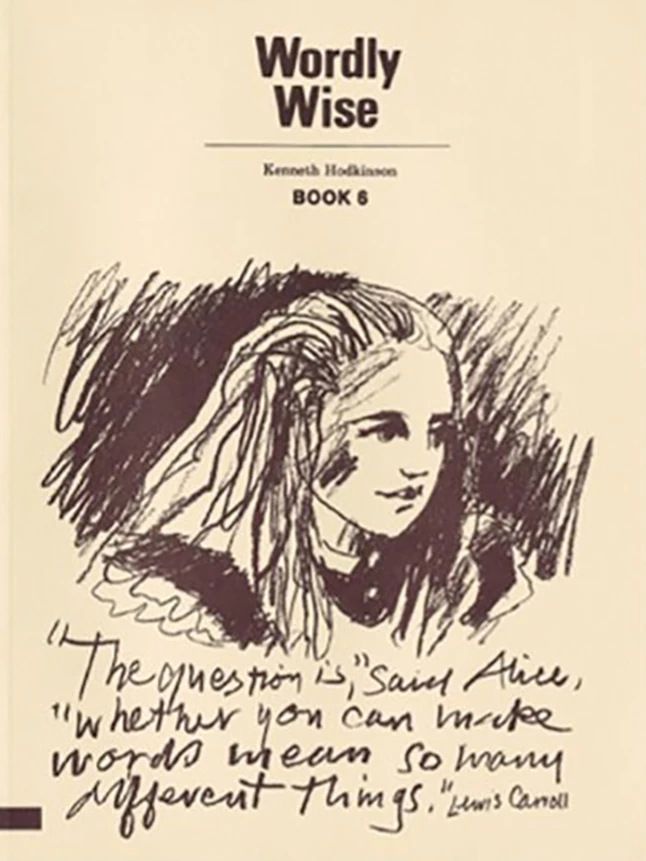 Wordly
Wise
Kenneth Hodkinson
BOOK 6
"The question is," said Alice,
"whether you can make
words mean so many
different things." Lewis Carroll